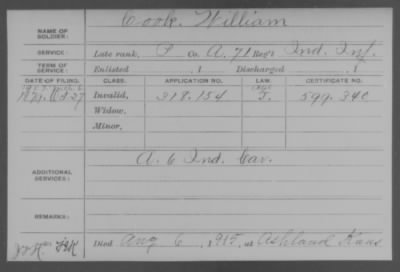 Cook, William
NAME OF
SOLDIER:
SERVICE: Late rank, P Co. A, 71 Reg't Ind. Inf.
TERM OF
SERVICE: Enlisted , 1 Discharged , 1
DATE OF FILING. CLASS. APPLICATION NO. LAW. CERTIFICATE NO.
Invalid, 318.154 599.340
Widow,
Minor,
ADDITIONAL
SERVICES: A. 6 Ind. Cav.
REMARKS:
Died Aug 6, 1915, at Ashland Kans